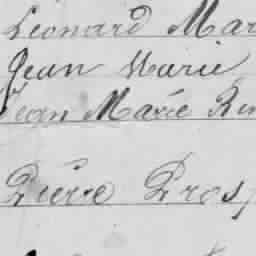 Leonard Mar
Jean Marie
Jean Marie Ren
Pierre Pros